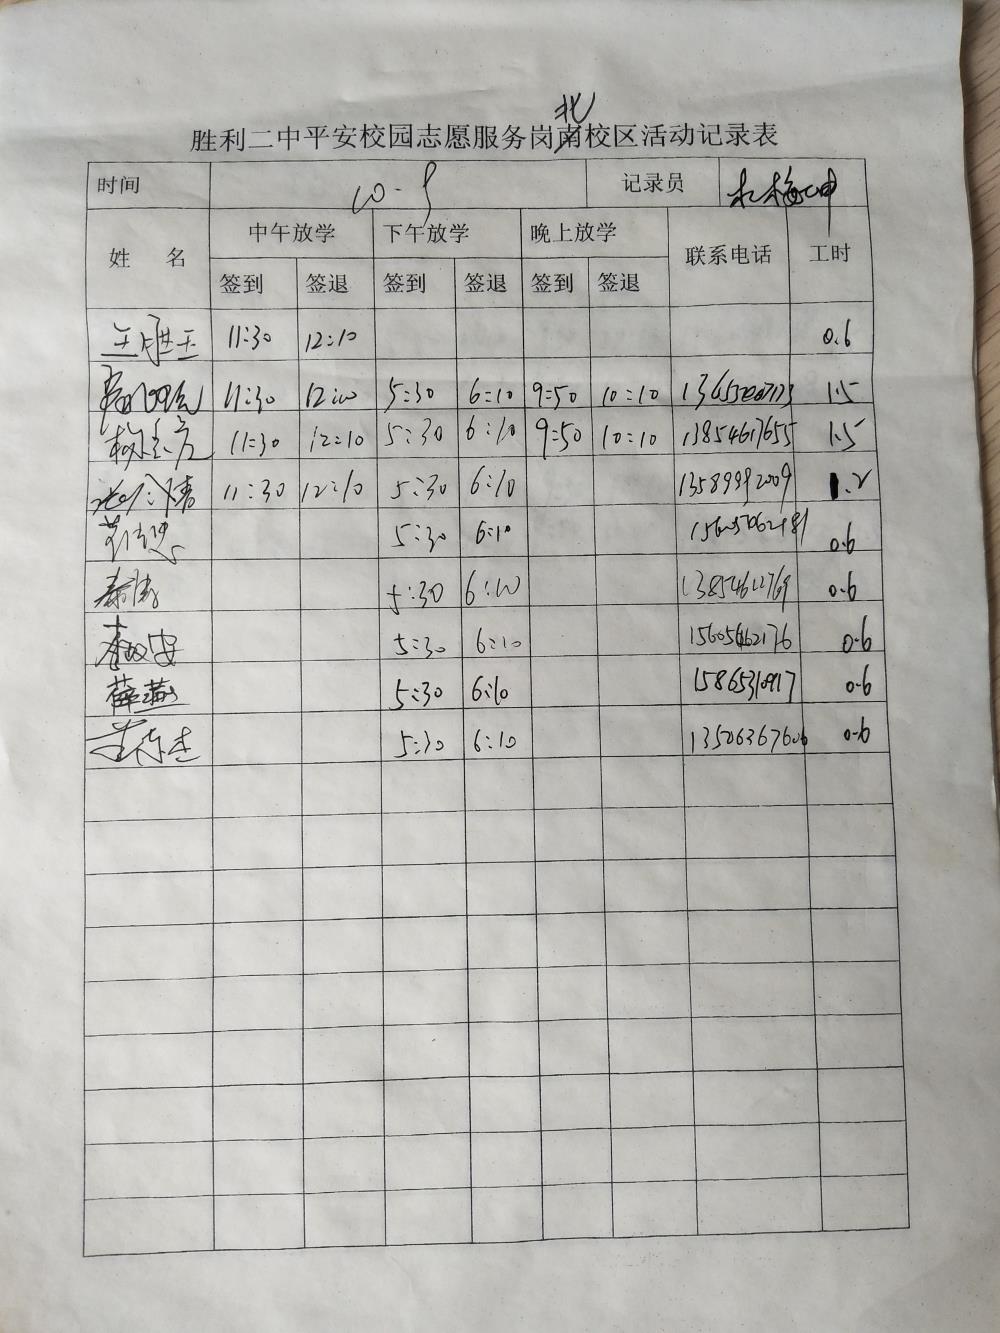 北
胜利二中平安校园志愿服务岗南校区活动记录表
时间 10.9 记录员
姓 名 中午放学 下午放学 晚上放学 联系电话 工时
签到 签退 签到 签退 签到 签退
11:30 12:10 0.6
11:30 12:10 5:30 6:10 9:50 10:10 1.5
11:30 12:10 5:30 6:10 9:50 10:10 13854617655 1.5
11:30 12:10 5:30 6:10 13589992009 1.2
5:30 6:10 0.6
秦勇 5:30 6:10 0.6
5:30 6:10 15605462176 0.6
薛燕 5:30 6:10 0.6
5:30 6:10 13506367606 0.6